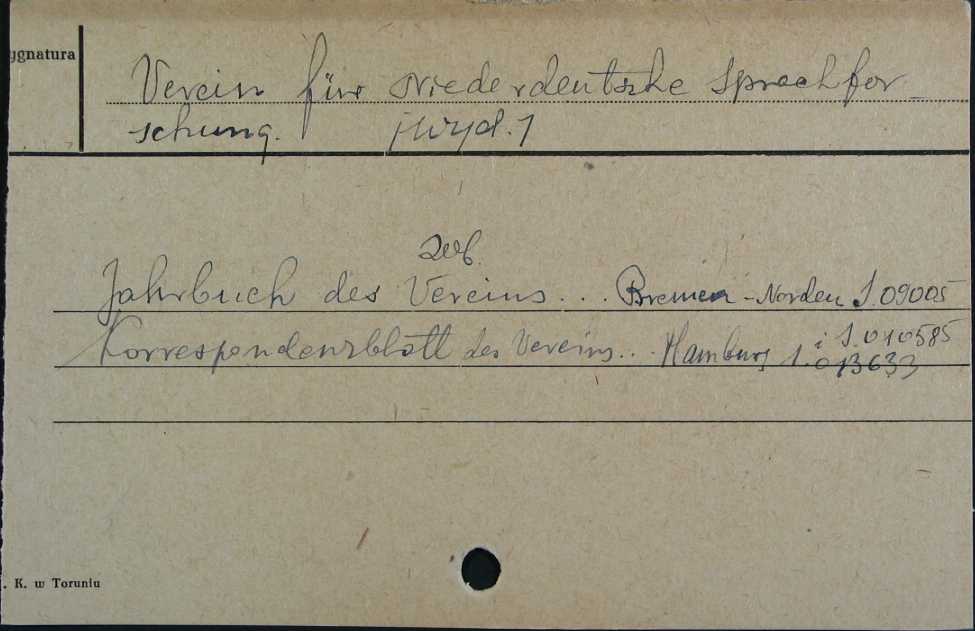 ygnatura
Verein für Niederdeutsche Sprachfor-
schung. /wyd./
zob.
Jahrbuch des Vereins... Bremen - Norden I.09005
Korrespondenzblatt des Vereins... Hamburg I.013633
i I.010585
. K. w Toruniu